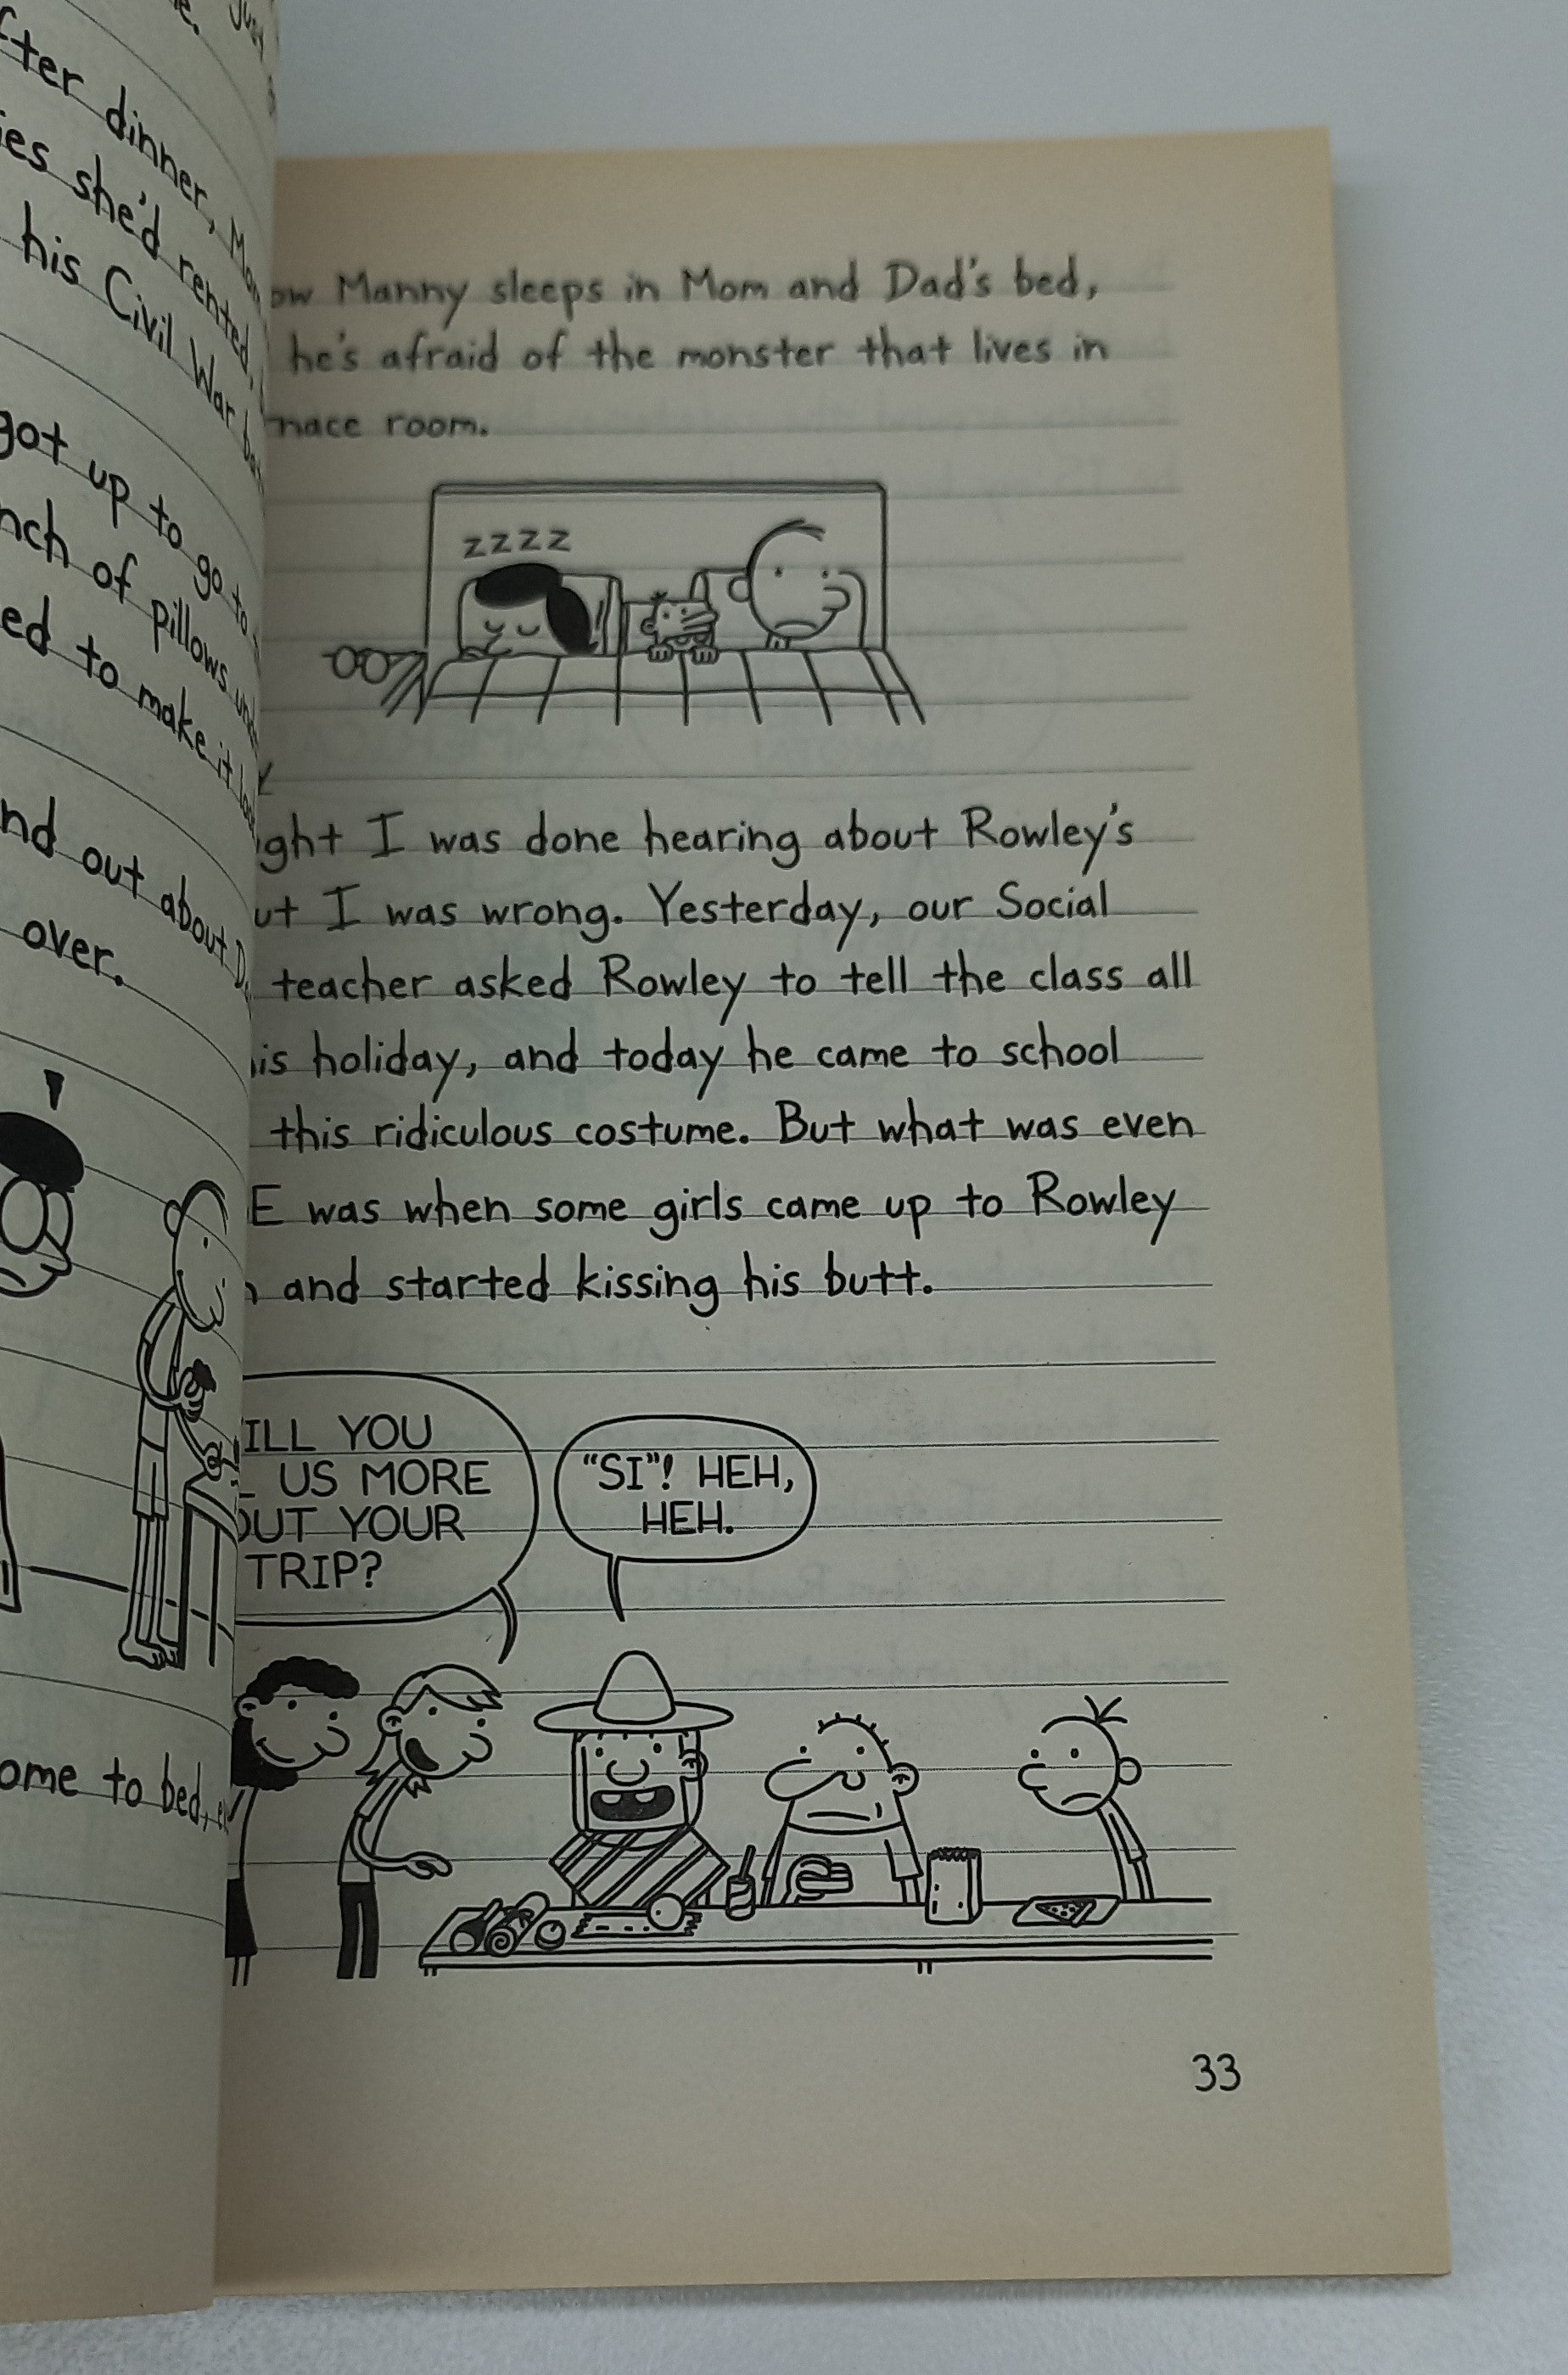 dinner,
she'd rented,
his Civil War
got up to go to
of pillows
to make it
out about
over.
to bed,
Manny sleeps in Mom and Dad's bed,
he's afraid of the monster that lives in
room.
ZZZZ
I was done hearing about Rowley's
I was wrong. Yesterday, our Social
teacher asked Rowley to tell the class all
holiday, and today he came to school
this ridiculous costume. But what was even
was when some girls came up to Rowley
and started kissing his butt.
YOU
US MORE
YOUR
TRIP?
"SI"! HEH,
HEH.
33